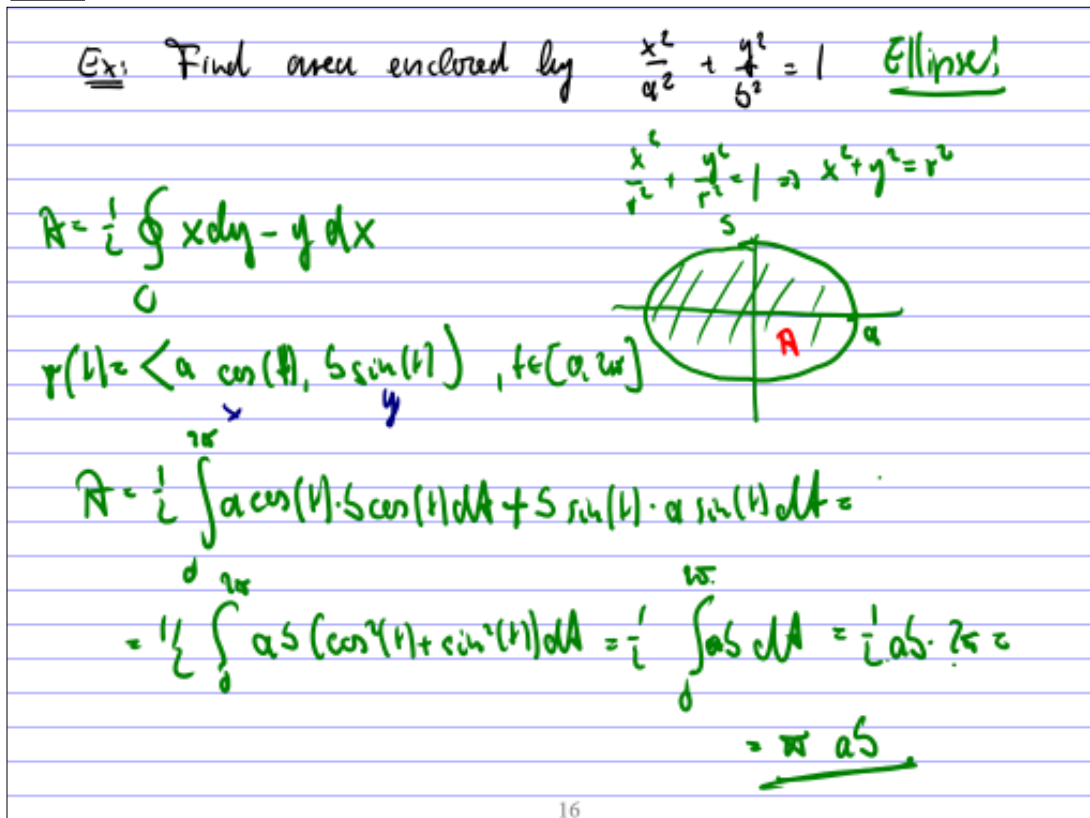 Ex: Find area enclosed by x²/a² + y²/b² = 1 Ellipse!
x²/r² + y²/r² = 1 ⇒ x² + y² = r²
A = 1/2 ∮ x dy - y dx
C
b
a
A
r(t) = <a cos(t), b sin(t)>, t ∈ [0, 2π]
x y
A = 1/2 ∫₀^2π a cos(t) · b cos(t) dt + b sin(t) · a sin(t) dt =
= 1/2 ∫₀^2π ab (cos²(t) + sin²(t)) dt = 1/2 ∫₀^2π ab dt = 1/2 ab · 2π =
= π ab
16